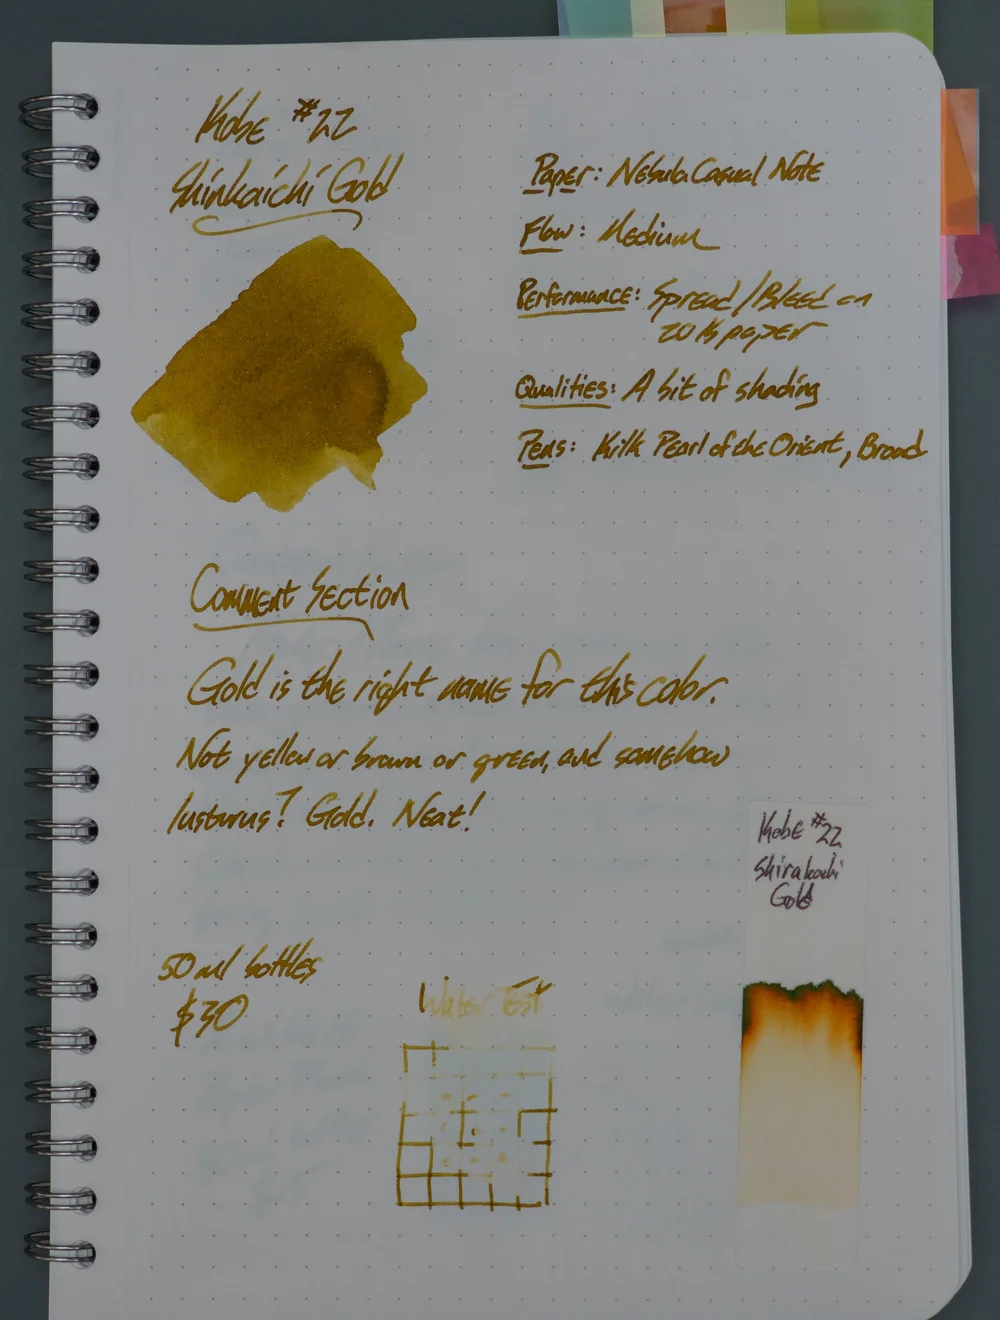 Kobe #22
Shinkaichi Gold
Paper: Nebula Casual Note
Flow: Medium
Performance: Spread/Bleed on
20 lb paper
Qualities: A bit of shading
Pens: Kilk Pearl of the Orient, Broad
Comment Section
Gold is the right name for this color.
Not yellow or brown or green, and somehow
lusturus? Gold. Neat!
50 ml bottles
$30
Water Test
Kobe #22
Gold